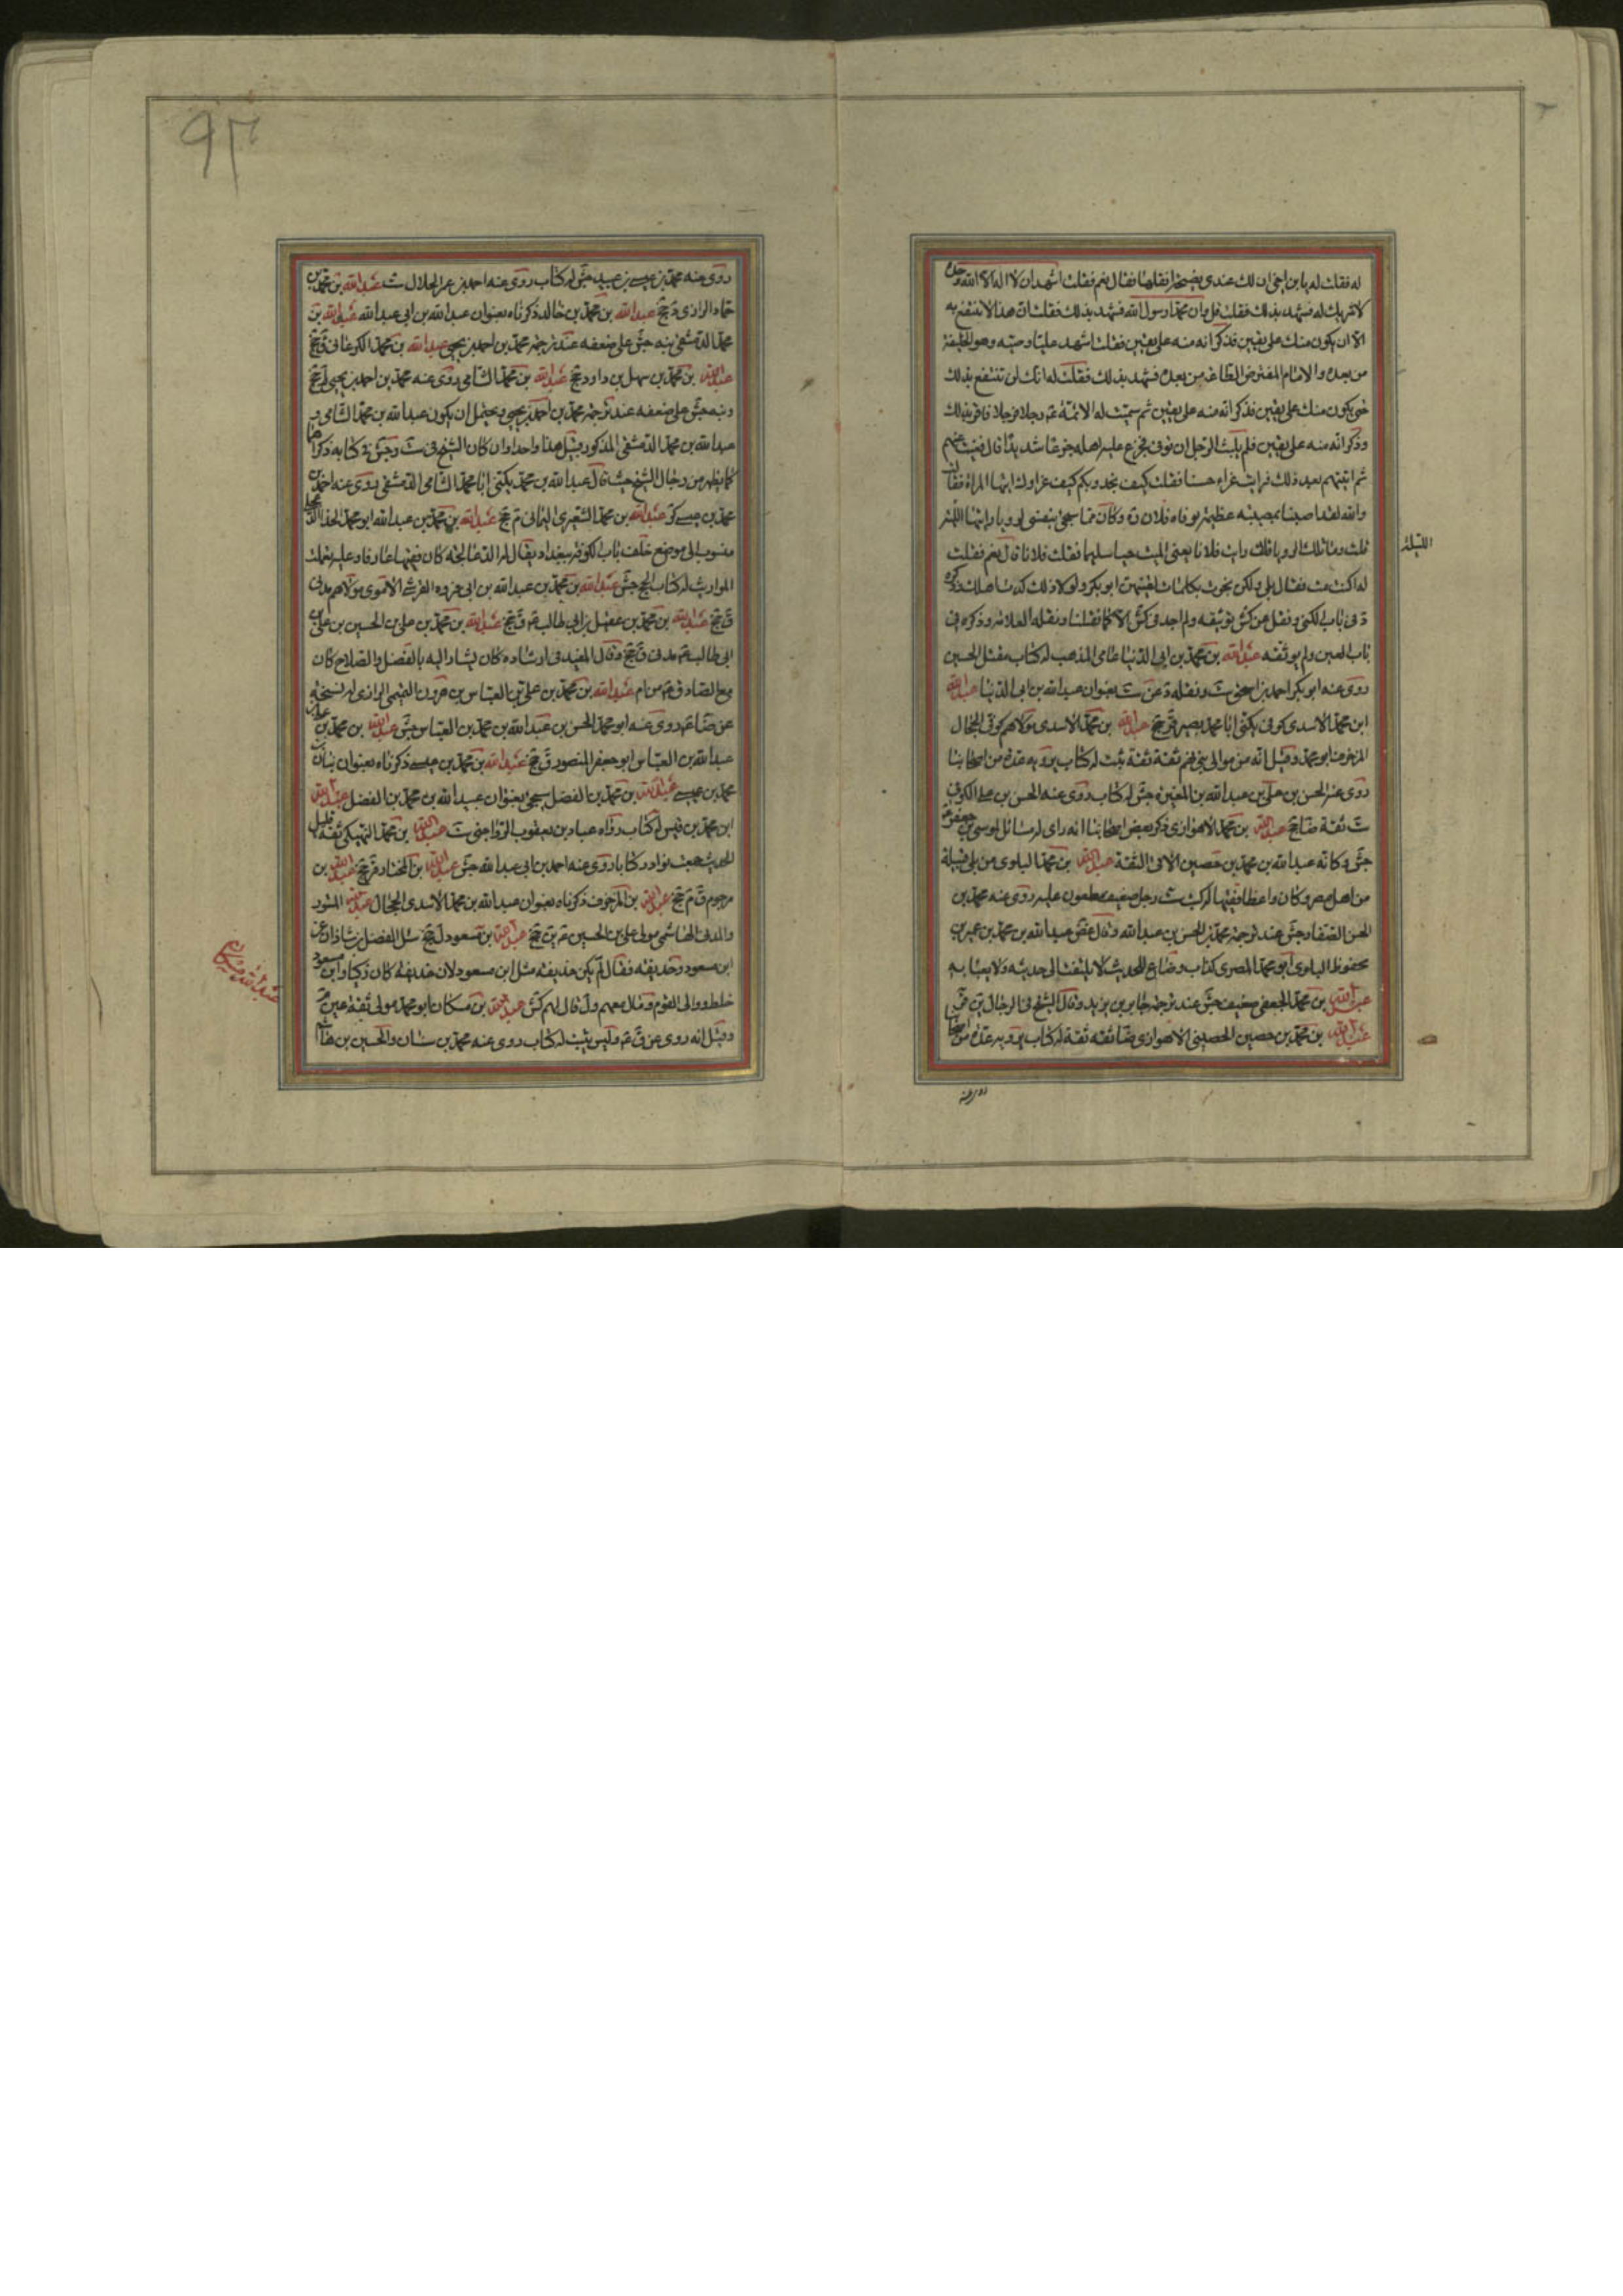 له فقلت له يا بن اخي ان لك عندي نصيحة اتقبلها فقال نعم فقلت اشهد ان لا اله الا الله وحده
لا شريك له فشهد بذلك فقلت قل وان محمدا رسول الله فشهد بذلك فقلت ان هذا لا تنتفع به
الا ان يكون منك على يقين فذكر انه منه على يقين فقلت اشهد ان عليا وصيه وهو الخليفة
من بعده والامام المفترض الطاعة من بعده فشهد بذلك فقلت له انك لن تنتفع بذلك
حتى يكون منك على يقين فذكر انه منه على يقين ثم سميت له الائمة عم رجلا فرجلا فاقر بذلك
وذكر انه منه على يقين فلم يلبث الرجل ان توفي فجزع عليه اهله جزعا شديدا قال فغبت عنهم
ثم اتيتهم بعد ذلك فرايت عزاء حسنا فقلت كيف تجدونكم كيف عزاؤك ايتها المراة فقالت
والله لقد اصبنا بمصيبة عظيمة بوفاة فلان ره وكان مما سخي بنفسي لرويا رايتها الليلة
قلت وما تلك الرويا قالت رايت فلانا يعني الميت حيا سليما فقلت فلانا قال نعم فقلت
له اكنت مت فقال بلى ولكن نجوت بكلمات لقنيهن ابو بكر ولولا ذلك كدت اهلك ذكره
د في باب الكنى ونقل عن كش توثيقه ولم اجد في كش الا كما نقلنا ونقله العلامة وذكره في
باب العين ولم يوثقه عبد الله بن محمد بن ابي الدنيا عامي المذهب له كتاب مقتل الحسين
روى عنه ابو بكر احمد بن اسحق ست ونقله د عن ست بعنوان عبد الله بن ابي الدنيا عبد الله
ابن محمد الاسدي كوفي يكنى ابا محمد بصير قر جخ عبد الله بن محمد الاسدي مولاهم كوفي الحجال
المزخرف ابو محمد وقيل انه من موالي بني تيم ثقة ثقة ثبت له كتاب يرويه عدة من اصحابنا
روى عنه الحسن بن علي بن عبد الله بن المغيرة جش له كتاب روى عنه الحسن بن علي الكوفي
ست ثقة ضا جخ عبد الله بن محمد الاهوازي ذكر بعض اصحابنا انه راى له مسائل لموسى بن جعفر عم
جش وكانه عبد الله بن محمد بن حصين الاتي الثقة عبد الله بن محمد البلوي من بلي قبيلة
من اهل مصر وكان واعظا فقيها له كتب ست رجل ضعيف مطعون عليه روى عنه محمد بن
الحسن الصفار جش عند ترجمة محمد بن الحسن بن عبد الله وقال غض عبد الله بن محمد بن عمير بن
محفوظ البلوي ابو محمد المصري كذاب وضاع للحديث لا يلتفت الى حديثه ولا يعبا به
عبد الله بن محمد الجعفي ضعيف جش عند ترجمة جابر بن يزيد وقال الشيخ في الرجال ين قر
عبد الله بن محمد بن حصين الحصيني الاهوازي ضا ثقة ثقة له كتاب يرويه عدة من اصحابنا
الليلة
روى عنه
روى عنه محمد بن عيسى بن عبيد جش له كتاب روى عنه احمد بن عمر الحلال ست عبد الله بن محمد بن
حماد الرازي د جخ عبد الله بن محمد بن خالد ذكرناه بعنوان عبد الله بن ابي عبد الله عبد الله بن
محمد الدمشقي نبه جش على ضعفه عند ترجمة محمد بن احمد بن يحيى عبد الله بن محمد الكرماني ق جخ
عبد الله بن محمد بن سهل بن داود جخ عبد الله بن محمد الشامي روى عنه محمد بن احمد بن يحيى لم جخ
ونبه جش على ضعفه عند ترجمة محمد بن احمد بن يحيى ويحتمل ان يكون عبد الله بن محمد الشامي و
عبد الله بن محمد الدمشقي المذكور قبيل هذا واحدا وان كان الشيخ في ست وجش في كتابه ذكراهما
كما يظهر من رجال الشيخ حيث قال عبد الله بن محمد يكنى ابا محمد الشامي الدمشقي يروى عنه احمد بن
محمد بن عيسى كر عبد الله بن محمد الشعيري اليماني م جخ عبد الله بن محمد بن عبد الله ابو محمد الحذاء الدعلجي
منسوب الى موضع خلف باب الكوفة ببغداد يقال له الدعالجة كان فقيها عارفا وعليه تعلمت
المواريث له كتاب الحج جش عبد الله بن محمد بن عبد الله بن ابي فروة القرشي الاموي مولاهم مدني
ق جخ عبد الله بن محمد بن عقيل بن ابي طالب عم ق جخ عبد الله بن محمد بن علي بن الحسين بن علي بن
ابي طالب عم مدني ق جخ وقال المفيد في ارشاده كان يشار اليه بالفضل والصلاح كان
مع الصادق عم من ام عبد الله بن محمد بن علي بن العباس بن هرون التميمي الرازي له نسخة
عن ضا عم روى عنه ابو محمد الحسن بن عبد الله بن محمد بن العباس جش عبد الله بن محمد بن علي بن
عبد الله بن العباس ابو جعفر المنصور ق جخ عبد الله بن محمد بن عيسى ذكرناه بعنوان بنان
محمد بن عيسى عبد الله بن محمد بن الفضل سيجئ بعنوان عبيد الله بن محمد بن الفضل عبد الله
ابن محمد بن قيس له كتاب رواه عباد بن يعقوب الرواجني ست عبد الله بن محمد النهيكي ثقة قليل
الحديث جمعت نوادره كتابا روى عنه احمد بن ابي عبد الله جش عبد الله بن المختار قر جخ عبد الله بن
مرحوم ق م جخ عبد الله بن المزخرف ذكرناه بعنوان عبد الله بن محمد الاسدي الحجال عبد الله المستورد
والمدني الهاشمي مولى علي بن الحسين عم ين جخ عبد الله بن مسعود ل جخ سئل الفضل بن شاذان عن
ابن مسعود وحذيفة فقال لم يكن حذيفة مثل ابن مسعود لان حذيفة كان زكيا وابن مسعود
خلط ووالى القوم ومال معهم وقال لهم كش عبد الله بن مسكان ابو محمد مولى ثقة عين م
وقيل انه روى عن ق عم وليس بثبت له كتاب روى عنه محمد بن سنان والحسين بن هاشم
عبد الله بن مسكان